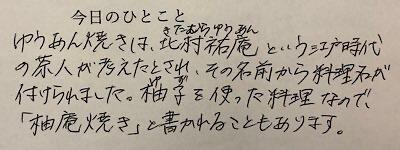 今日のひとこと
きたむらゆうあん
ゆうあん焼きは、北村祐庵という江戸時代
の茶人が考えたとされ、その名前から料理名が
ゆず
付けられました。柚子を使った料理なので、
「柚庵焼き」と書かれることもあります。